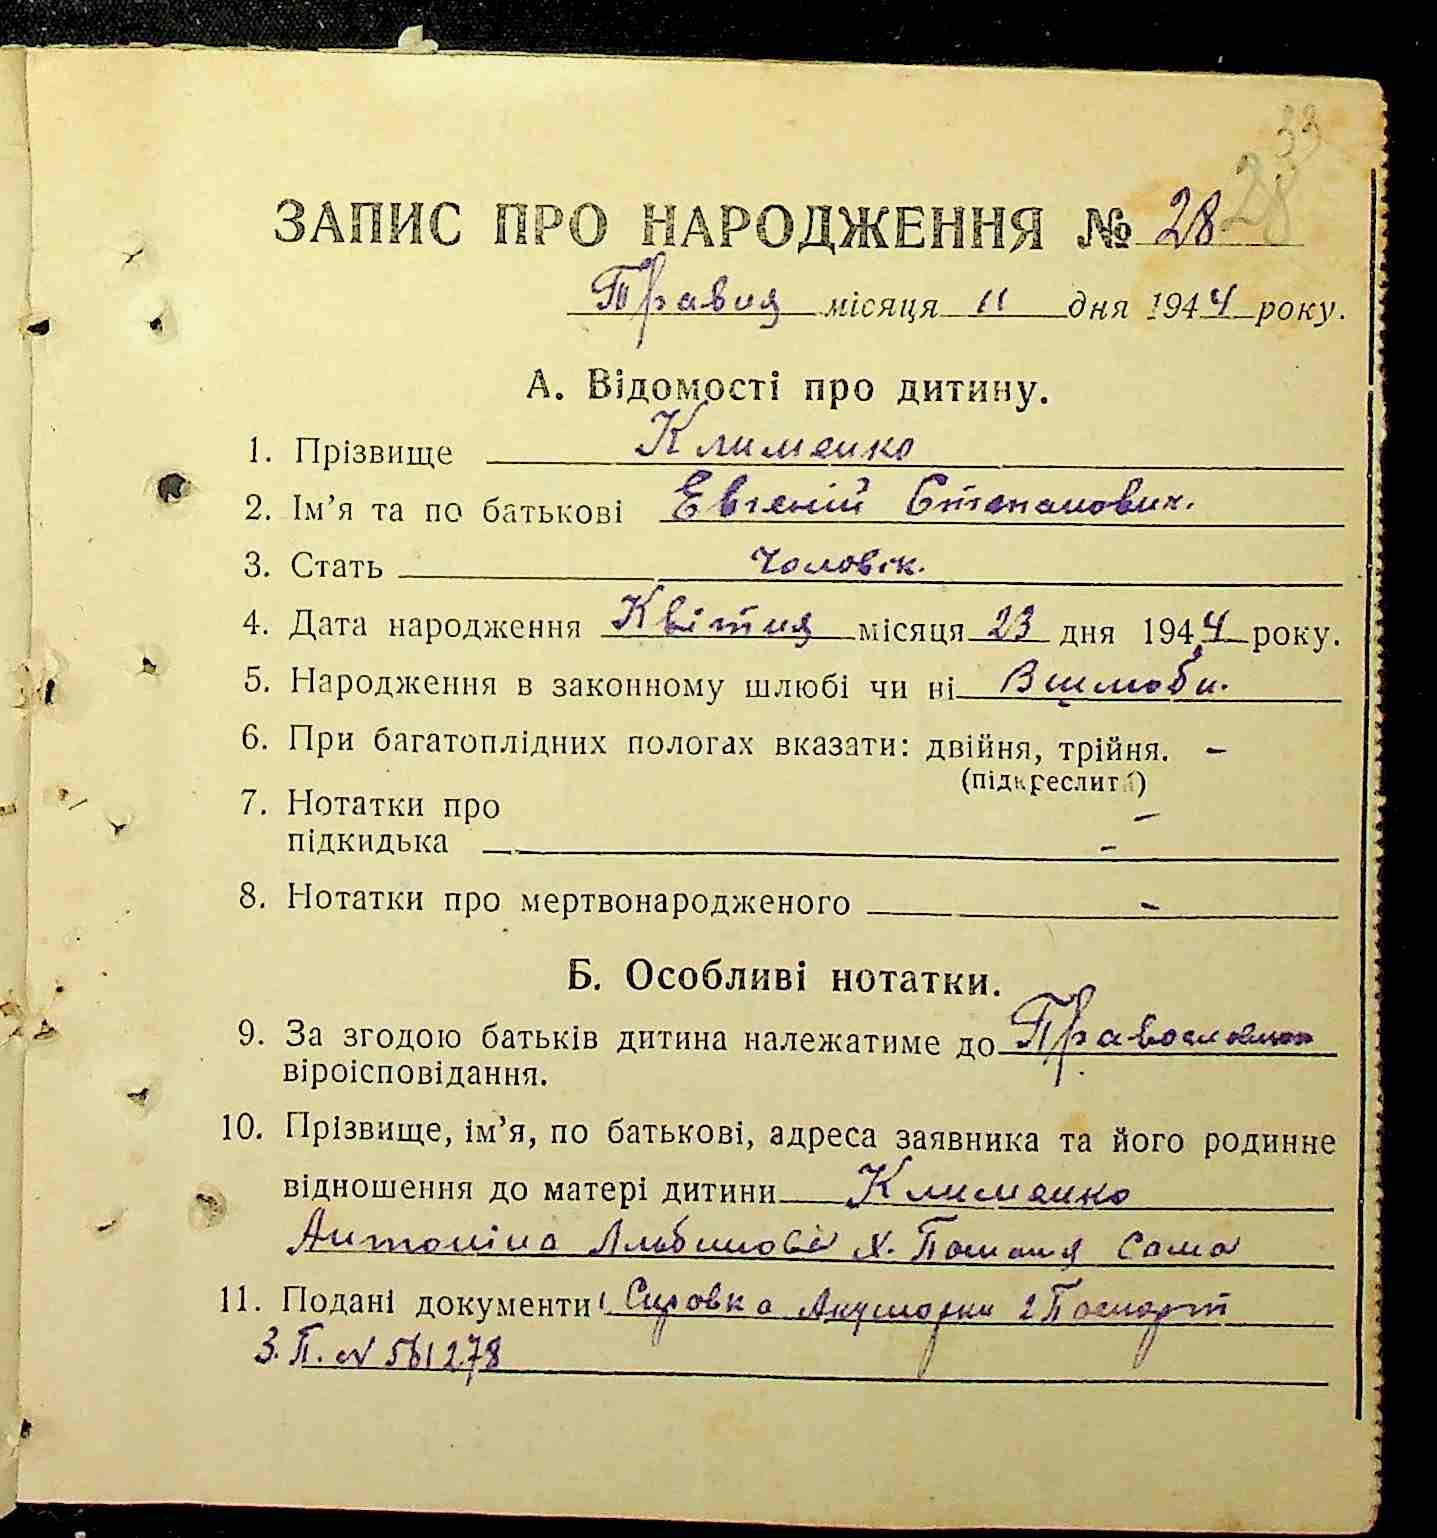 33
28
ЗАПИС ПРО НАРОДЖЕННЯ № 28
Травня місяця 11 дня 1944 року.
А. Відомості про дитину.
1. Прізвище Клименко
2. Ім'я та по батькові Евгеній Степанович.
3. Стать Чоловік.
4. Дата народження Квітня місяця 23 дня 1944 року.
5. Народження в законному шлюбі чи ні В шлюби.
6. При багатоплідних пологах вказати: двійня, трійня. –
(підкреслити)
7. Нотатки про –
підкидька –
8. Нотатки про мертвонародженого –
Б. Особливі нотатки.
9. За згодою батьків дитина належатиме до
віроісповідання.
10. Прізвище, ім'я, по батькові, адреса заявника та його родинне
відношення до матері дитини Клименко
Антоніна Альбинова х. Сама
11. Подані документи 1 Справка Акушорки 2 Паспорт
З. П. № 561278